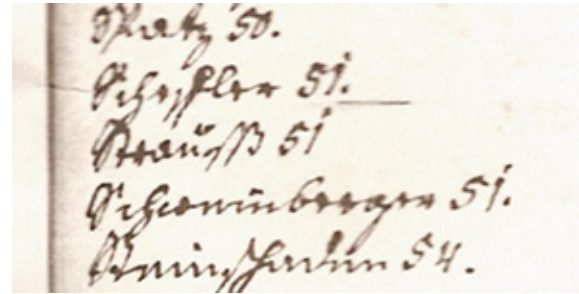 Spatz 50.
Scheffler 51.
Strauß 51
Schweinberger 51.
Steinschaden 54.